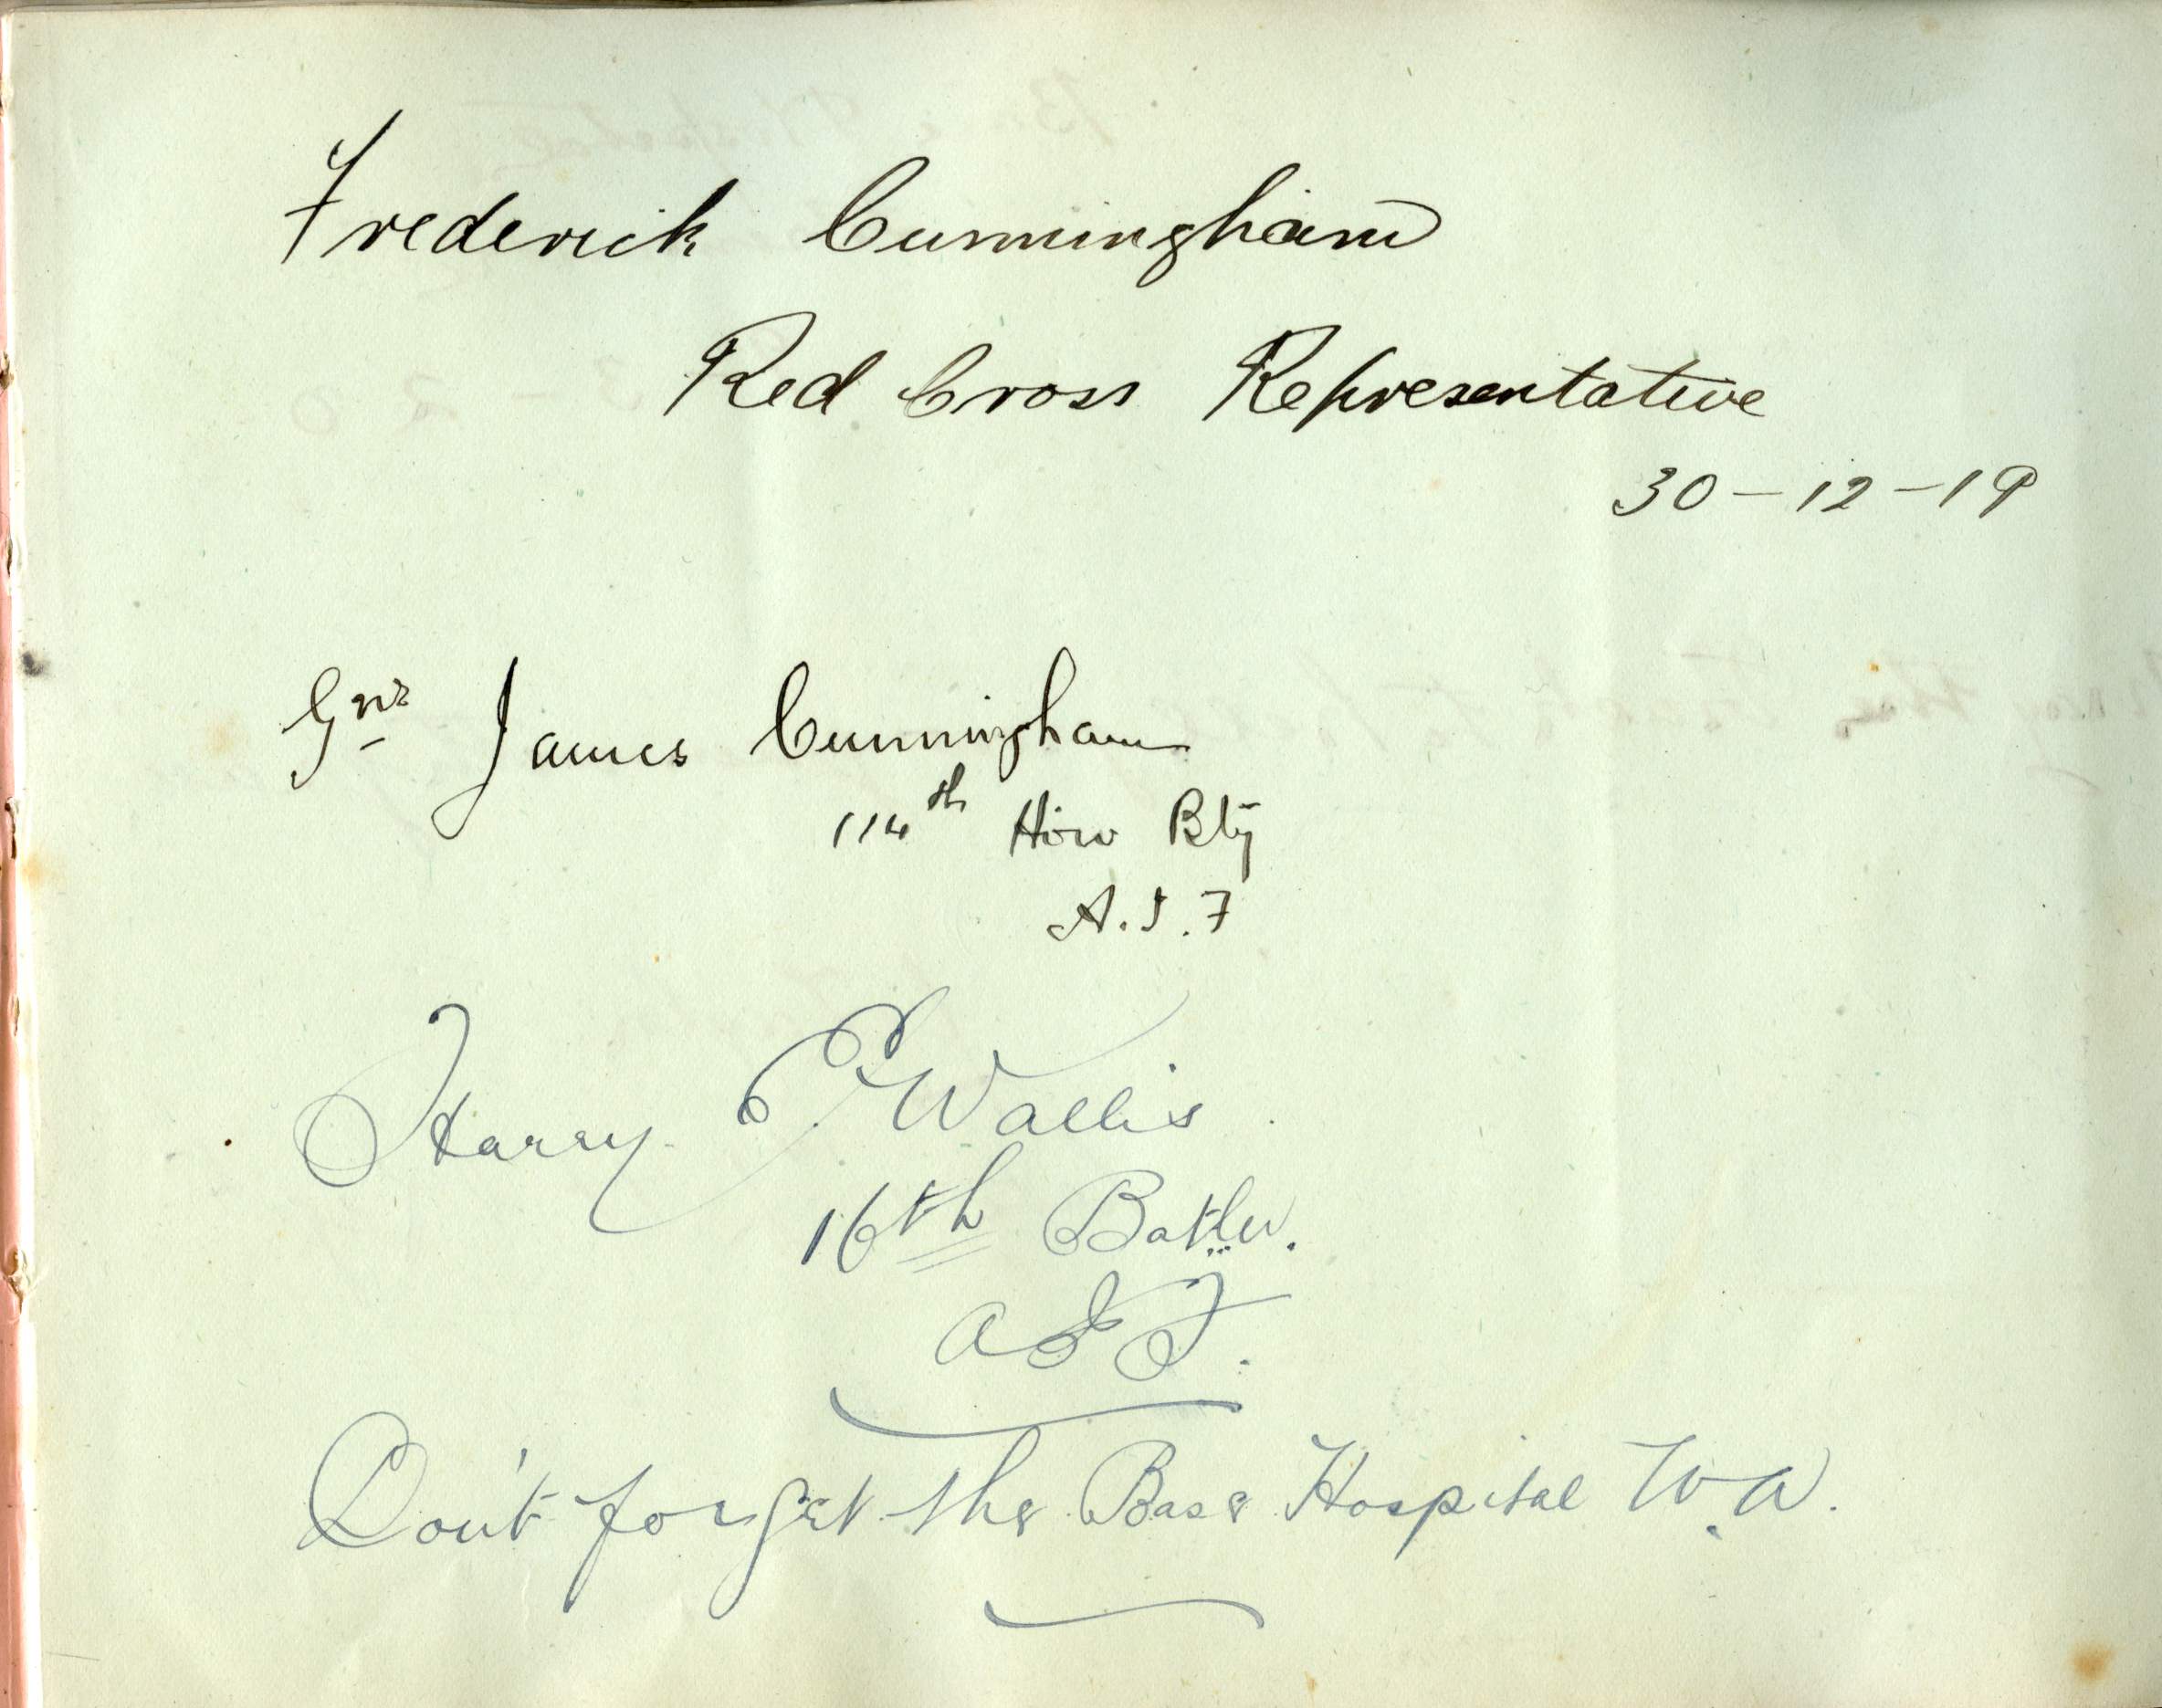 Frederick Cunningham
Red Cross Representative
30-12-19
Gnr James Cunningham
114th How Bty
A.I.F
Harry E Wallis
16th Battn.
AIF.
Don't forget the Base Hospital W.A.